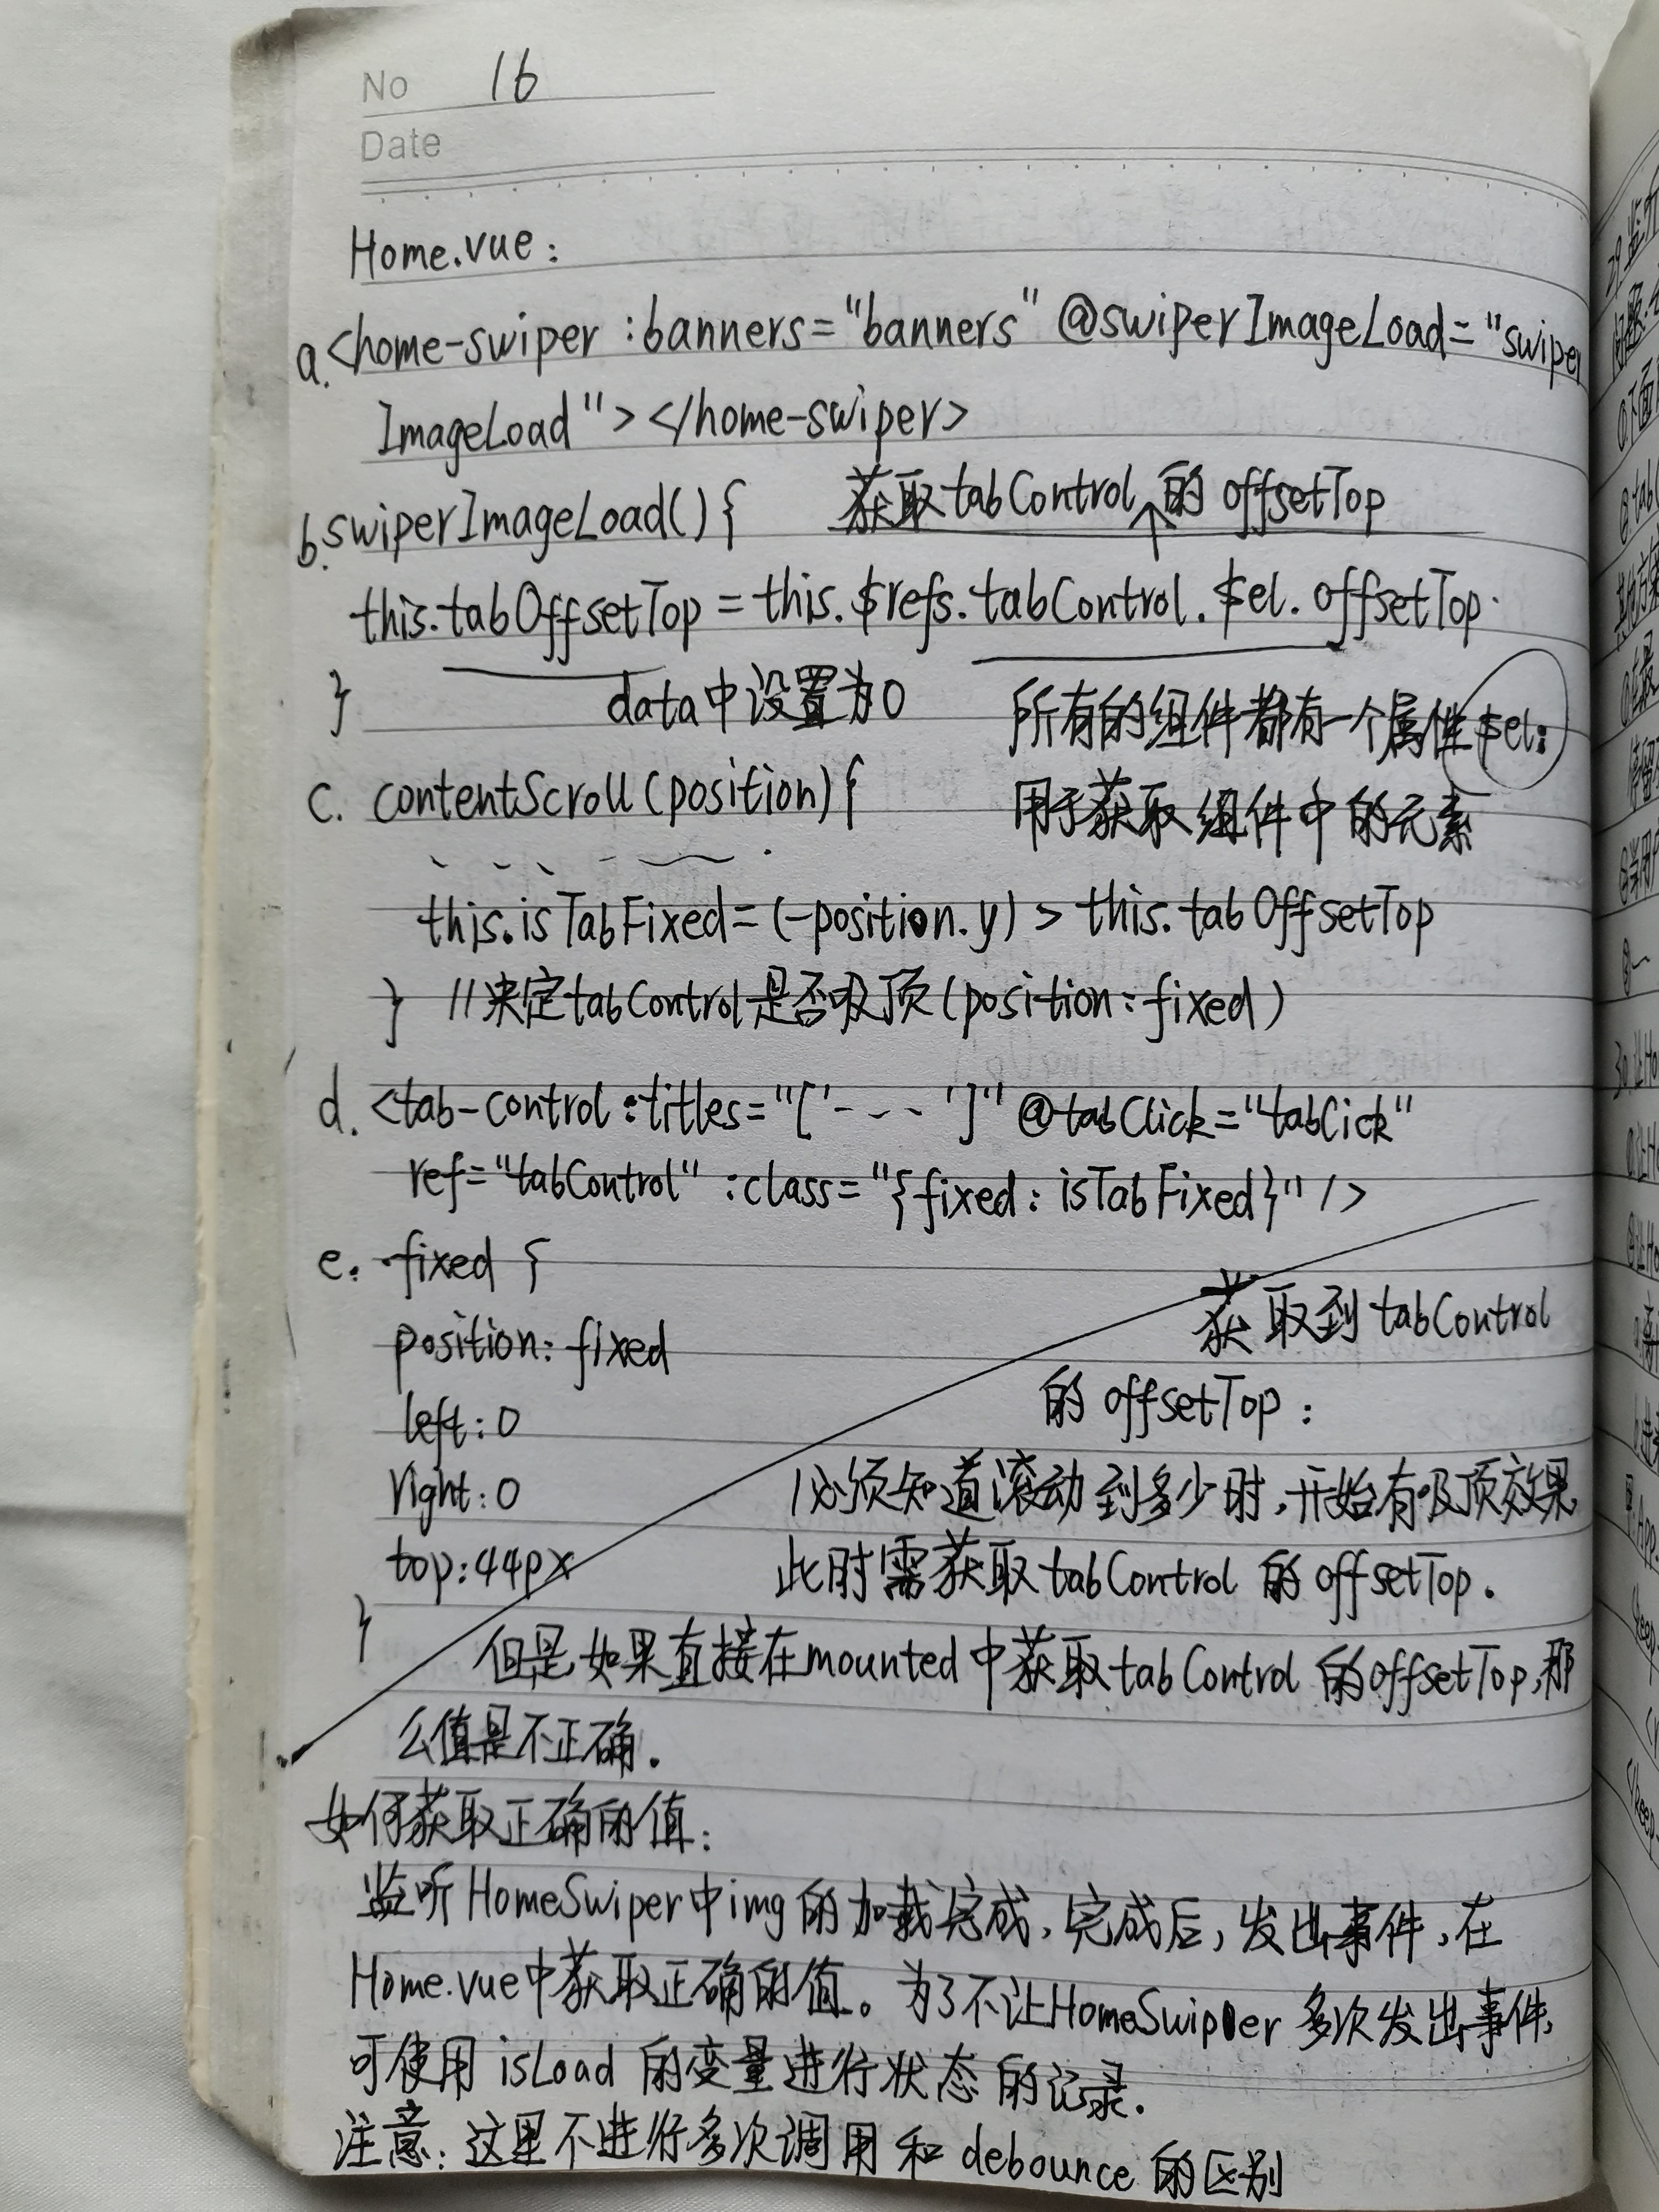 No 16
Date
Home.vue:
a.<home-swiper :banners="banners" @swiperImageLoad="swiper
ImageLoad"></home-swiper>
b.swiperImageLoad(){ 获取tabControl的offsetTop
↑
this.tabOffsetTop = this.$refs.tabControl.$el.offsetTop
} data中设置为0 所有的组件都有一个属性$el:
c. contentScroll(position){ 用于获取组件中的元素
this.isTabFixed=(-position.y) > this.tabOffsetTop
} //决定tabControl是否吸顶(position:fixed)
d. <tab-control :titles="['----']" @tabClick="tabCick"
ref="tabControl" :class="{fixed: isTabFixed}" />
e. .fixed {
position: fixed 获取到tabControl
left: 0 的offsetTop:
right: 0 必须知道滚动到多少时,开始有吸顶效果
top:44px 此时需获取tabControl的offsetTop.
} 但是,如果直接在mounted中获取tabControl的offsetTop,那
么值是不正确.
如何获取正确的值:
监听HomeSwiper中img的加载完成,完成后,发出事件,在
Home.vue中获取正确的值。为了不让HomeSwiper多次发出事件,
可使用isLoad的变量进行状态的记录.
注意:这里不进行多次调用和debounce的区别